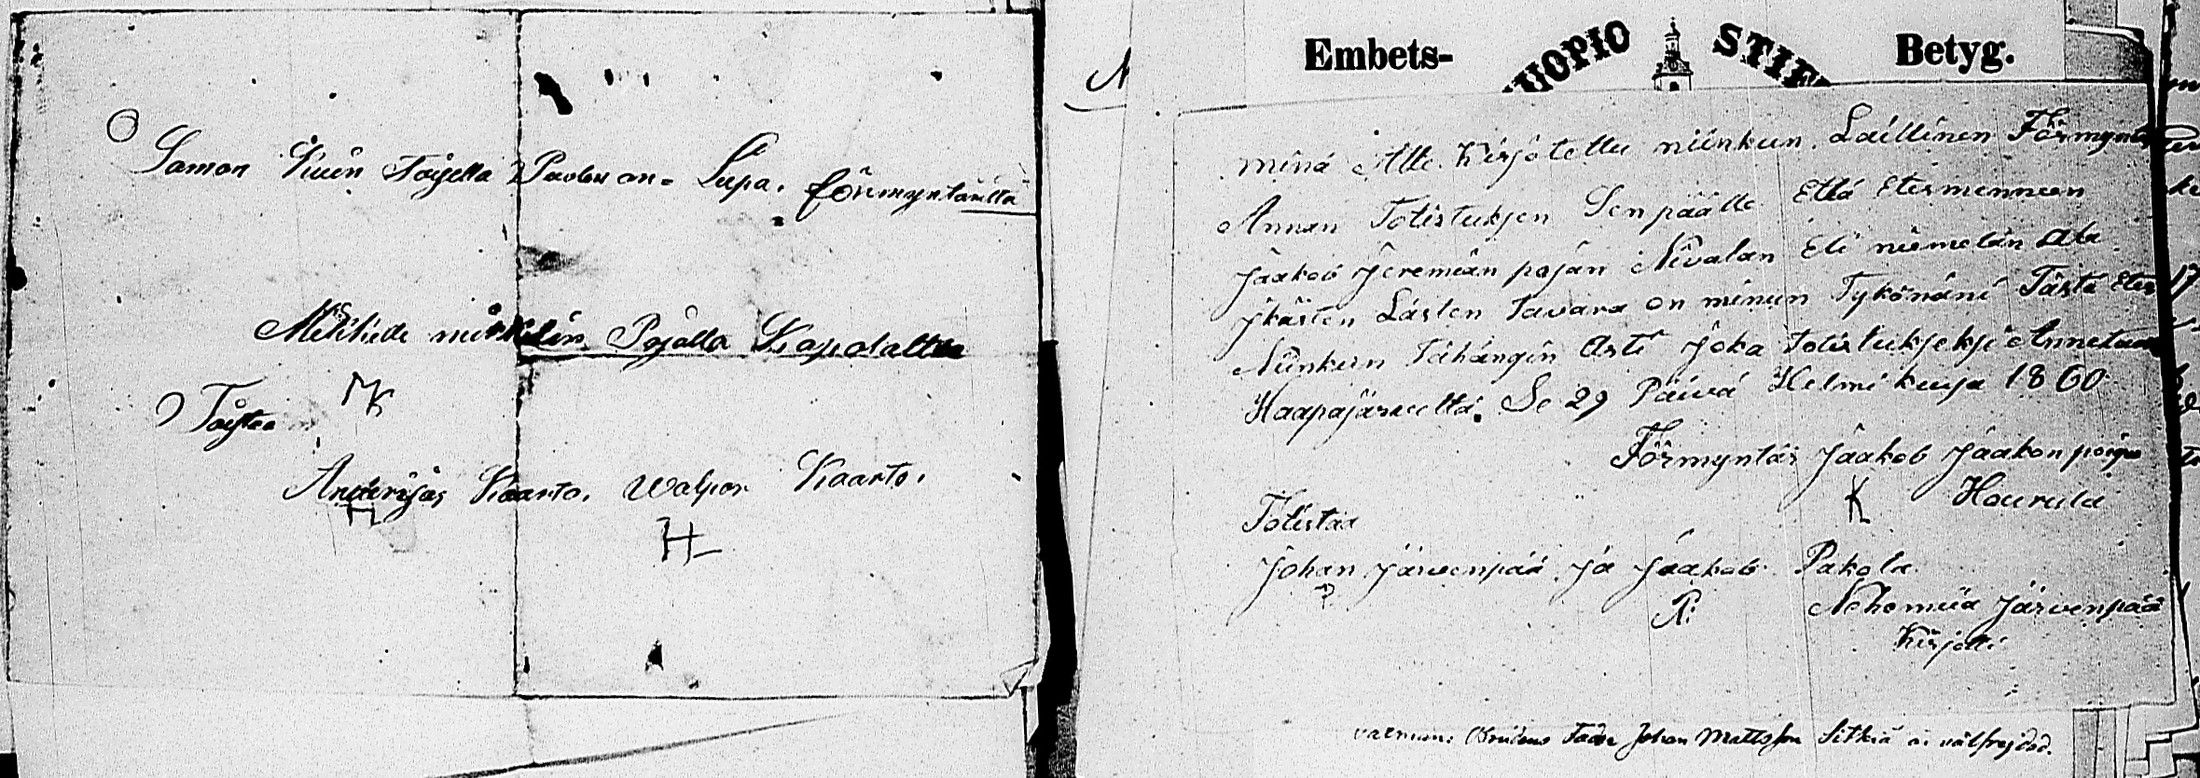 Saman Kuin Toisella Puolen on Lupa. förmyntäriltä
Mikkeli Pojalla Kapotaltta
MK
Toistaa
Anderijas Kaarto. Walpor Kaarto.
H H
N
Embets- KUOPIO STIFT Betyg.
minä Alle Kirjotettu niinkun Laillinen Förmyntär
Annan Totistuksen Sen päälle Että Etesmenneen
Jaakob Jeremiän pojan Nivalan Eli niemelän Ala
jkästen Lästen tavara on minun Tykönäni Tästä Etes
Niinkun Tähängin Asti Joka totistukseksi Annetaan
Haapajärveltä. Se 29 Päivä Helmi kuusa 1860
Förmyntär Jaakob Jaakon poijga
K Haurula
Totistaa
Johan Järvenpää Ja Jaakob Pakola
P P: Nehemiia Järvenpää
Kirjotti
Johan Mattsson Sitkiä är välfrejdad.